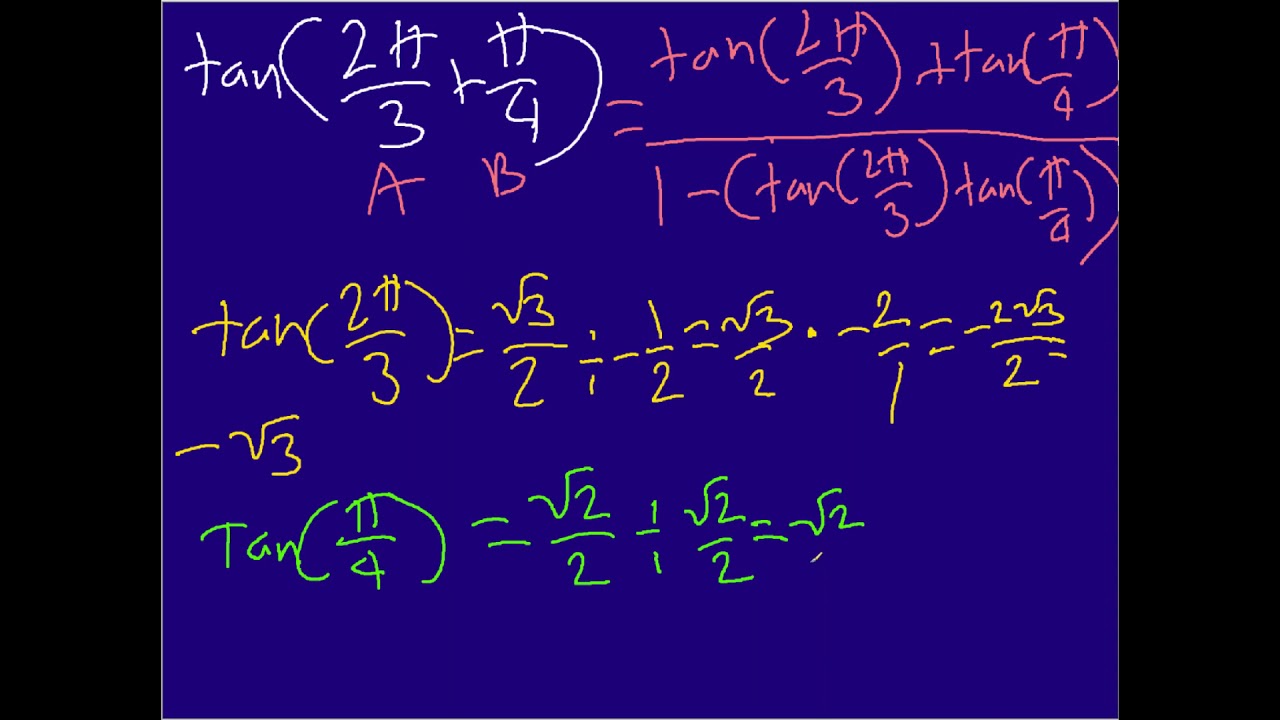 tan(2π/3 + π/4) = tan(2π/3) + tan(π/4) / 1 - (tan(2π/3) tan(π/4))
A B
tan(2π/3) = √3/2 ÷ - 1/2 = √3/2 · - 2/1 = -2√3/2 =
- √3
Tan(π/4) = √2/2 ÷ √2/2 = √2